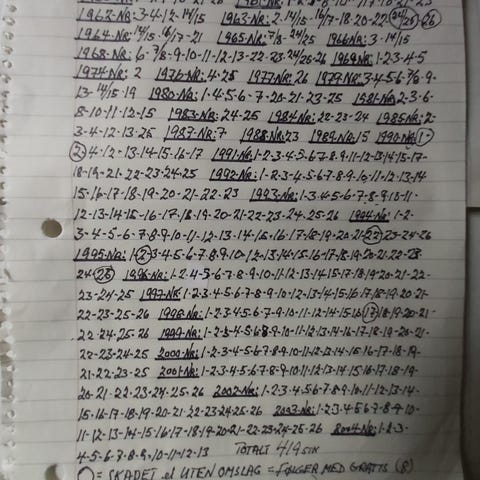 1962-NR: 3-4-12-14/15 1963-NR: 2-14/15-16/17-18-20-22-24/25-26
1964-NR: 14/15-16/17-21 1965-NR: 7/8-24/25 1966NR: 3-14/15
1968-NR: 6-7/8-9-10-11-12-13-22-23-24/25-26 1969NR: 1-2-3-4-5
1974NR: 2 1976-NR: 4-25 1977NR: 26 1979NR: 3-4-5-6-7/8-9-
13-14/15-19 1980NR: 1-4-5-6-7-20-21-23-25 1981NR: 2-3-6
8-10-11-12-15 1983-NR: 24-25 1984NR: 22-23-24 1985NR: 2-
3-4-12-13-25 1987-NR: 7 1988-NR: 23 1989NR: 15 1990-NR: 1-
2-4-12-13-14-15-16-17 1991-NR: 1-2-3-4-5-6-7-8-9-11-12-13-14-15-17-
18-19-21-22-23-24-25 1992-NR: 1-2-3-4-5-6-7-8-9-10-11-12-13-14
15-16-17-18-19-20-21-22-23 1993-NR: 1-3-4-5-6-7-8-9-10-11-
12-13-14-15-16-17-18-19-20-21-22-23-24-25-26 1994NR: 1-2-
3-4-5-6-7-8-9-10-11-12-13-14-15-16-17-18-19-20-21-22-23-24-26
1995-NR: 1-2-3-4-5-6-7-8-9-10-12-13-14-15-16-17-18-19-20-21-22-23-
24-25 1996-NR: 1-2-4-5-6-7-8-9-10-11-12-13-14-15-17-18-19-20-21-22-
23-24-25 1997-NR: 1-2-3-4-5-6-7-8-9-10-12-13-14-15-16-17-18-19-20-21-
22-23-25-26 1998-NR: 1-2-3-4-5-6-7-8-9-10-11-12-14-15-16-17-18-19-20-21-
22-24-25-26 1999-NR: 1-2-3-4-5-6-8-9-10-11-12-13-14-16-17-18-19-20-21-
22-23-24-25 2000-NR: 1-2-3-4-5-6-7-8-9-10-11-12-13-14-15-16-17-18-19-
21-22-23-25 2001-NR: 1-2-3-4-5-6-7-8-9-10-11-12-13-14-15-16-17-18-19-
20-21-22-23-24-25-26 2002-NR: 1-2-3-4-5-6-7-8-9-10-11-12-13-14-
15-16-17-18-19-20-21-22-23-24-25-26 2003-NR: 1-2-3-4-5-6-7-8-9-10-
11-12-13-14-15-16-17-18-19-20-21-22-23-24-25-26 2004-NR: 1-2-3-
4-5-6-7-8-9-10-11-12-13 TOTALT 419 STK
= SKADET el UTEN OMSLAG = FØLGER MED GRATIS (8)